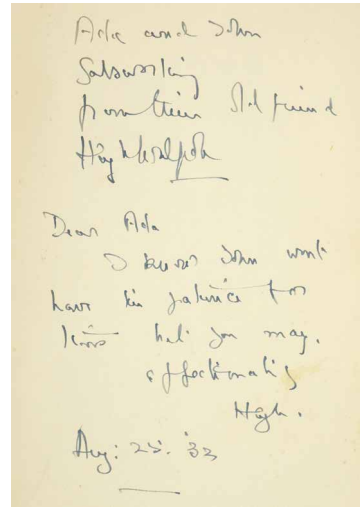 Ada and John
Galsworthy
from their old friend
Hugh Walpole
Dear Ada
I know John won't
have the patience for
this but you may.
affectionately
Hugh.
Aug: 25. '32